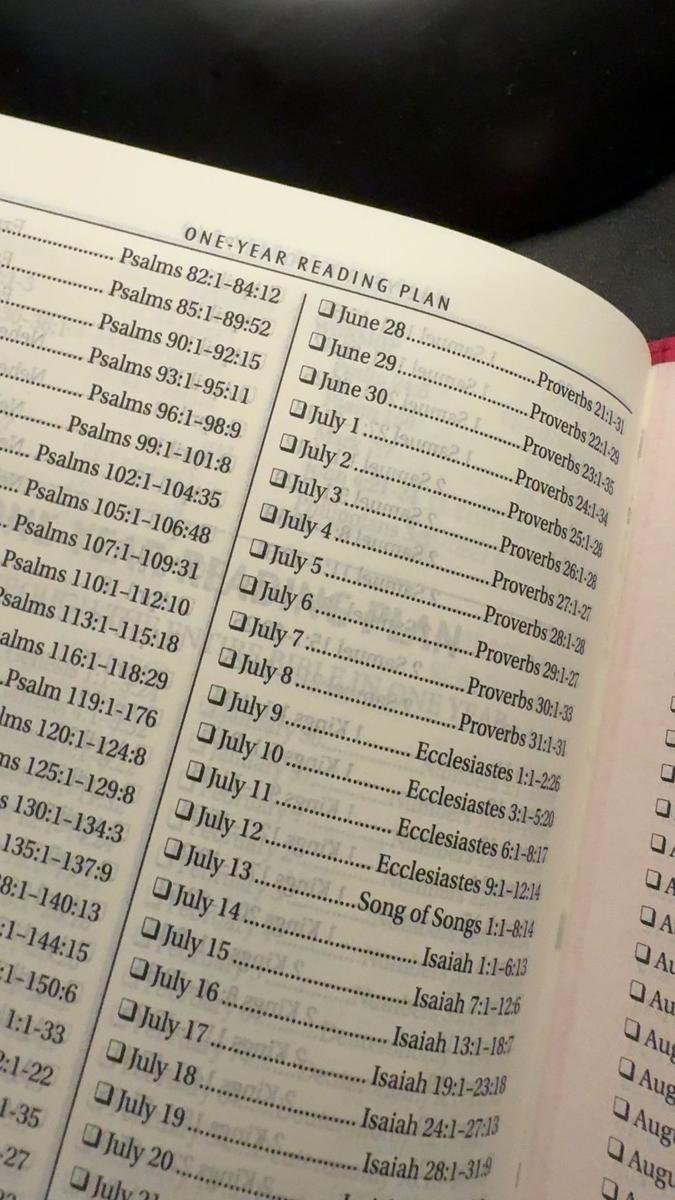 ONE-YEAR READING PLAN
Psalms 82:1–84:12
Psalms 85:1–89:52
Psalms 90:1–92:15
Psalms 93:1–95:11
Psalms 96:1–98:9
Psalms 99:1–101:8
Psalms 102:1–104:35
Psalms 105:1–106:48
Psalms 107:1–109:31
Psalms 110:1–112:10
Psalms 113:1–115:18
alms 116:1–118:29
Psalm 119:1-176
lms 120:1–124:8
ms 125:1–129:8
s 130:1–134:3
135:1–137:9
8:1–140:13
:1–144:15
:1–150:6
1:1-33
2:1-22
1-35
-27
❑ June 28........................Proverbs 21:1-31
❑ June 29........................Proverbs 22:1-29
❑ June 30........................Proverbs 23:1-35
❑ July 1........................Proverbs 24:1-34
❑ July 2........................Proverbs 25:1-28
❑ July 3........................Proverbs 26:1-28
❑ July 4........................Proverbs 27:1-27
❑ July 5........................Proverbs 28:1-28
❑ July 6........................Proverbs 29:1-27
❑ July 7........................Proverbs 30:1-33
❑ July 8........................Proverbs 31:1-31
❑ July 9................... Ecclesiastes 1:1–2:26
❑ July 10................. Ecclesiastes 3:1–5:20
❑ July 11................. Ecclesiastes 6:1–8:17
❑ July 12............... Ecclesiastes 9:1–12:14
❑ July 13...............Song of Songs 1:1–8:14
❑ July 14......................... Isaiah 1:1–6:13
❑ July 15......................... Isaiah 7:1–12:6
❑ July 16........................ Isaiah 13:1–18:7
❑ July 17...................... Isaiah 19:1–23:18
❑ July 18...................... Isaiah 24:1–27:13
❑ July 19........................ Isaiah 28:1–31:9
❑ July 20
❑ A
❑ A
❑ A
❑ Au
❑ Au
❑ Aug
❑ Aug
❑ Augu
❑ Augu